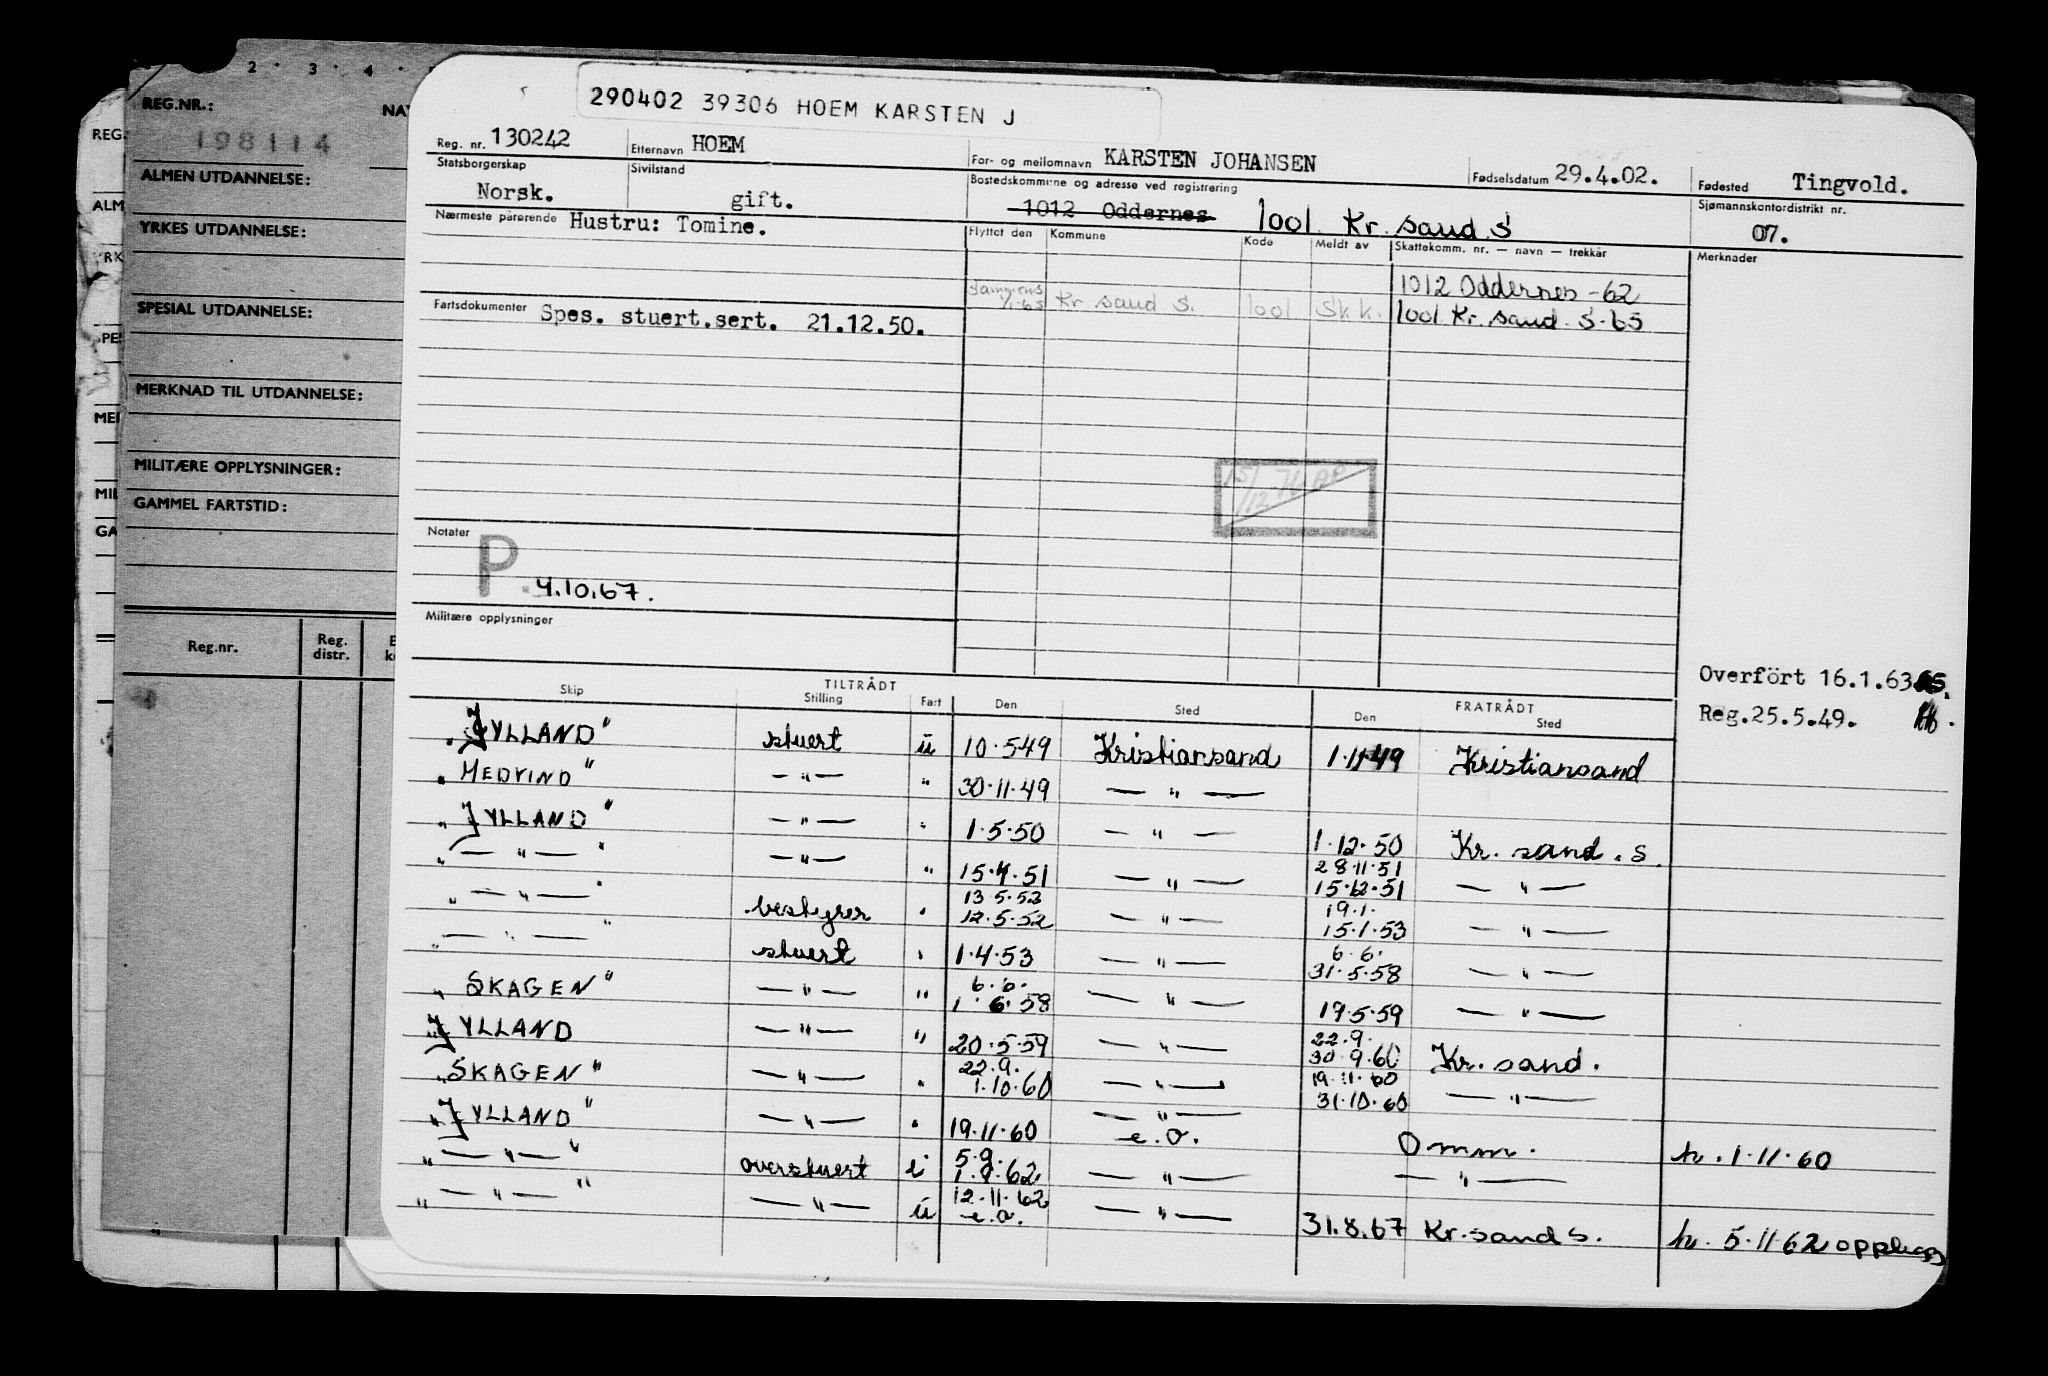 2 · 3 · 4 ·
REG.NR.:
198114
ALMEN UTDANNELSE:
YRKES UTDANNELSE:
SPESIAL UTDANNELSE:
MERKNAD TIL UTDANNELSE:
MILITÆRE OPPLYSNINGER:
GAMMEL FARTSTID:
Reg.nr. Reg. distr.
290402 39306 HOEM KARSTEN J
Reg. nr. 130242 Etternavn HOEM For- og mellomnavn KARSTEN JOHANSEN Fødselsdatum 29.4.02. Fødested Tingvold.
Statsborgerskap Norsk. Sivilstand gift. Bostedskommune og adresse ved registrering 1012 Oddernes 1001 Kr. sand S Sjømannskontordistrikt nr. 07.
Nærmeste pårørende Hustru: Tomine. Flyttet den Kommune Kode Meldt av Skattekomm. nr. — navn — trekkår Merknader
1012 Oddernes -62
Fartsdokumenter Spes. stuert.sert. 21.12.50. 1/1-65 Kr sand S. 1001 Sk.k. 1001 Kr. sand. S-65
15/12
Notater
P 4.10.67.
Militære opplysninger
Overført 16.1.63
Reg.25.5.49.
TILTRÅDT FRATRÅDT
Skip Stilling Fart Den Sted Den Sted
"JYLLAND" stuert u 10.5.49 Kristiansand 1.11.49 Kristiansand
"MEDVIND" —"— " 30.11.49 —"—
"JYLLAND" —"— " 1.5.50 —"— 1.12.50 Kr. sand. S.
"—"—" —"— " 15.4.51 —"— 28.11.51 15.12.51 —"—
"—"—" bestyrer " 13.5.52 12.5.52 —"— 19.1. 15.1.53 —"—
"—"—" stuert " 1.4.53 —"— 6.6. 31.5.58 —"—
"SKAGEN" —"— " 6.6. 1.6.58 —"— 19.5.59 —"—
JYLLAND —"— " 20.5.59 —"— 22.9. 30.9.60 Kr. sand.
"SKAGEN" —"— " 22.9. 1.10.60 —"— 19.11.60 31.10.60 —"—
"JYLLAND" —"— " 19.11.60 —"— e.o. Omm. h. 1.11.60
"—"—" overstuert i 5.9. 1.9.62 —"— —"—
"—"—" —"— u 12.11.62 e.o. —"— 31.8.67 Kr.sand S. h. 5.11 62 opplagg